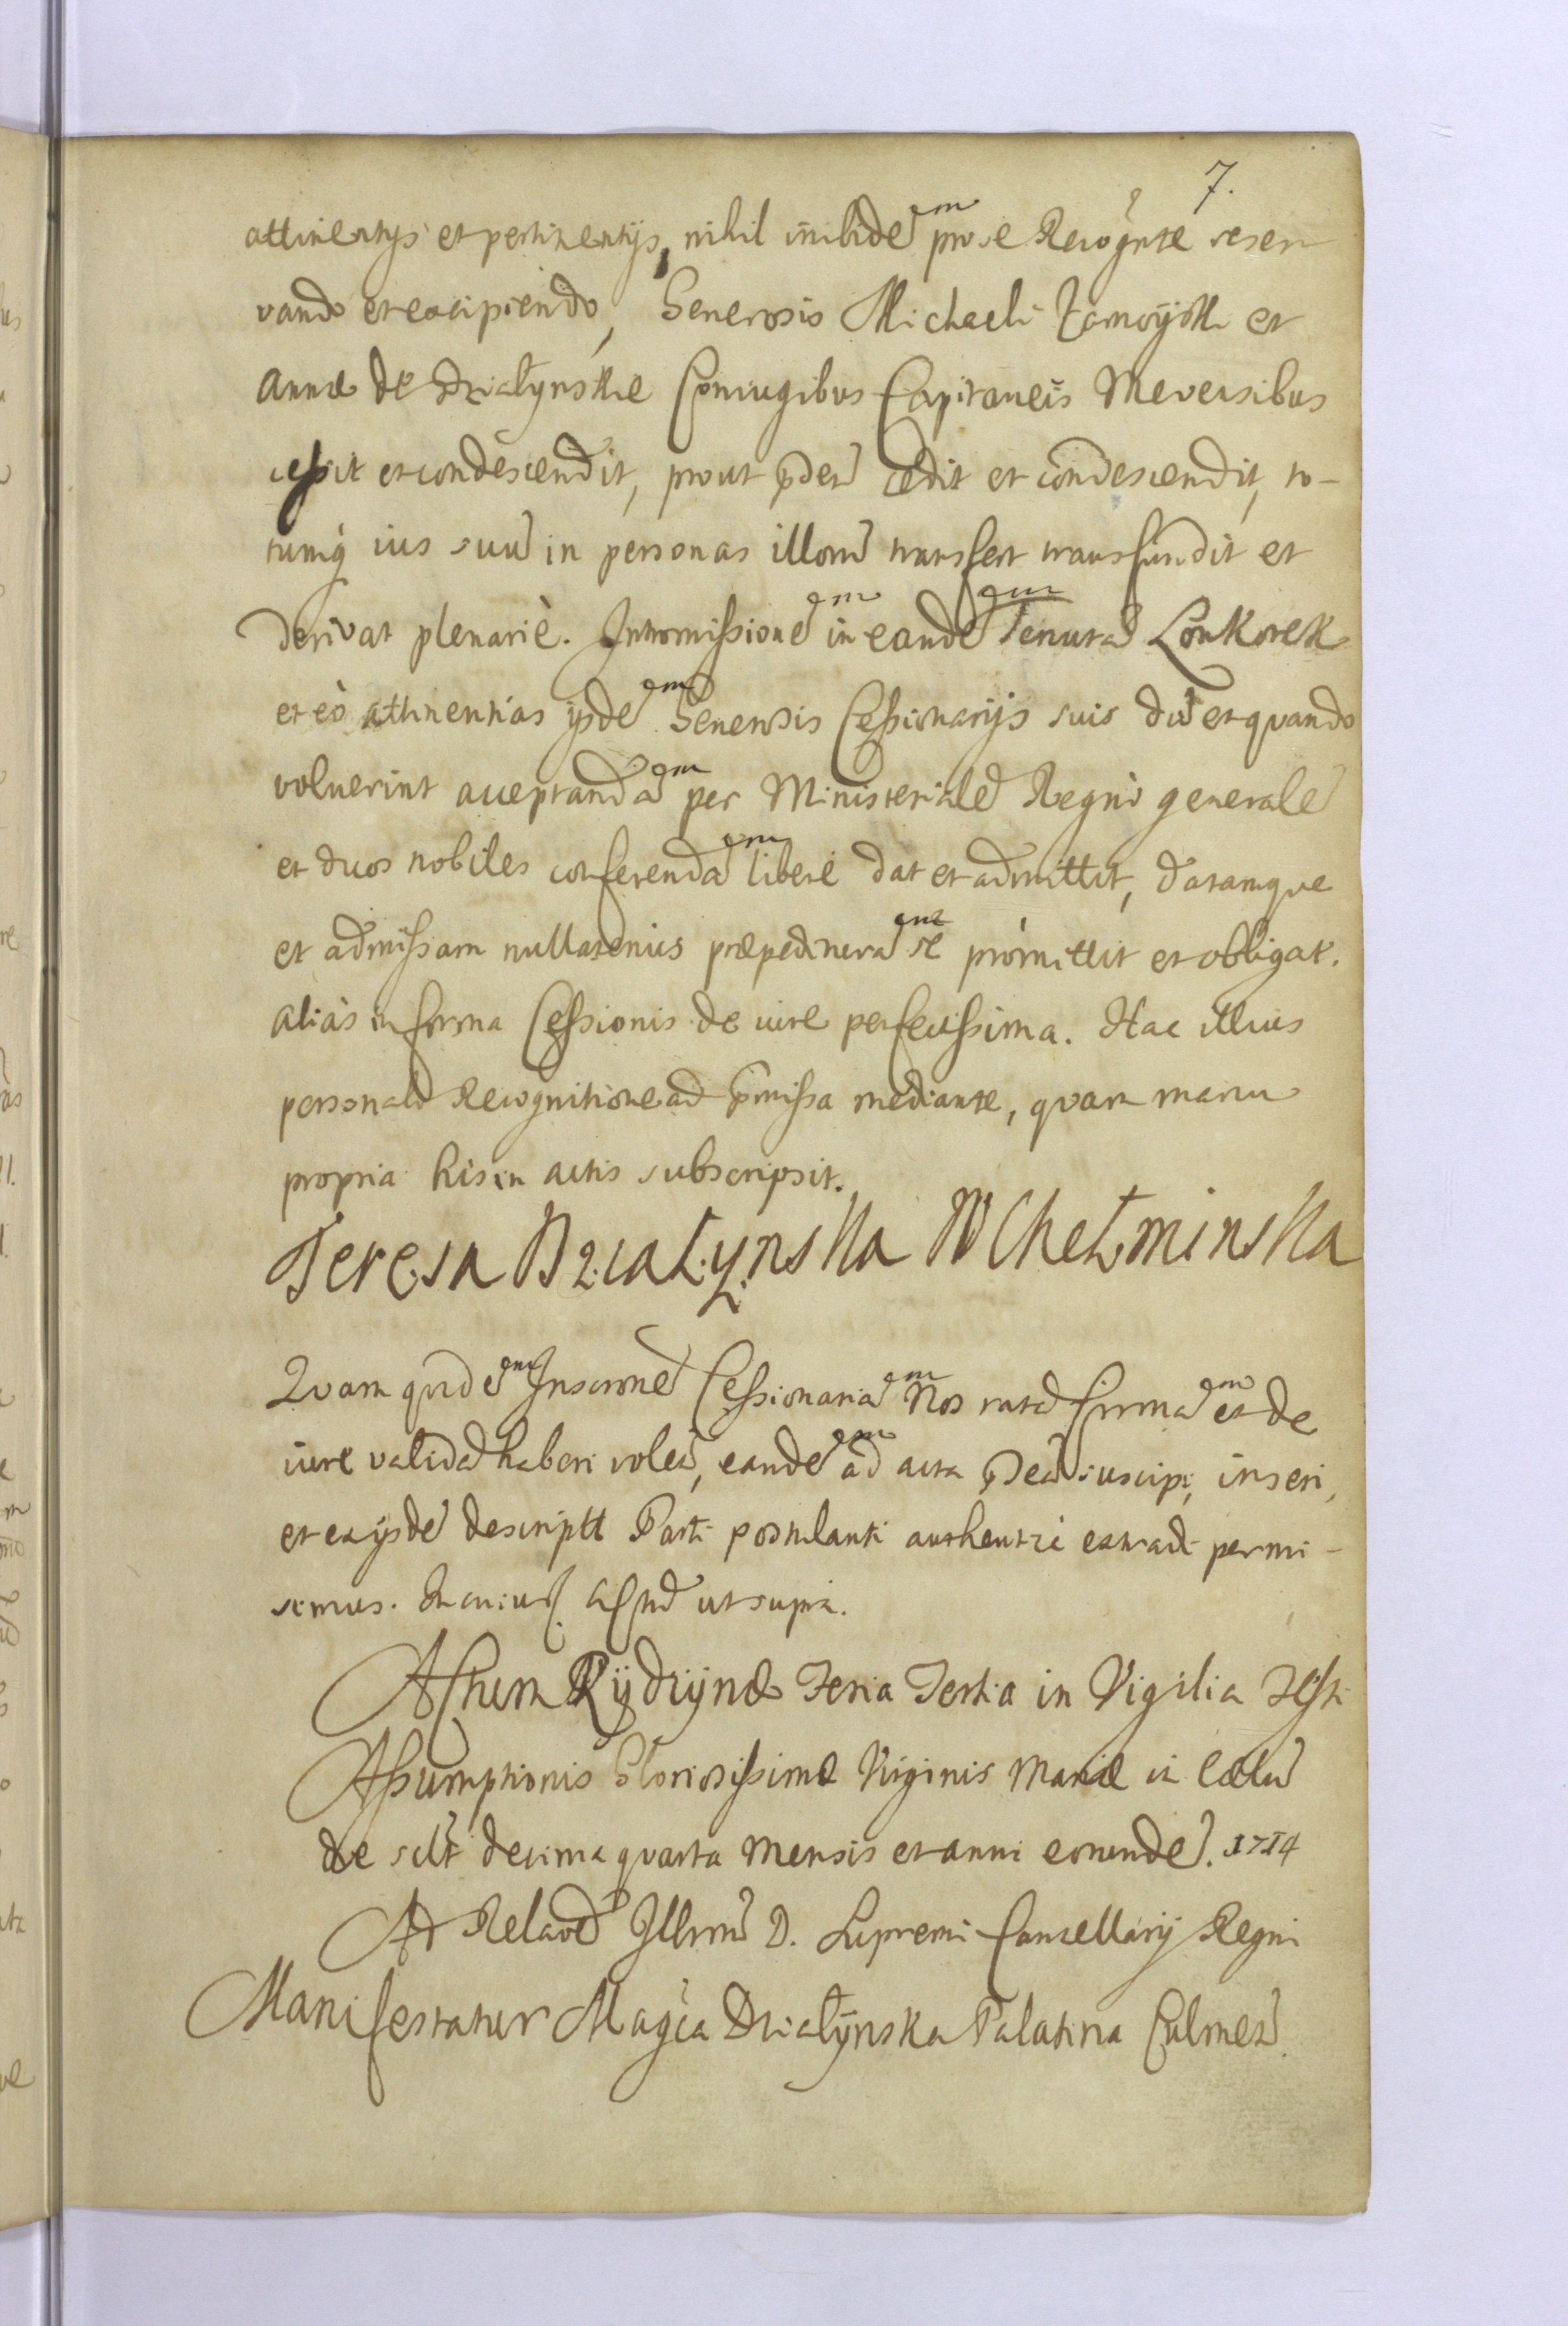 7.
attinentijs et pertinentijs, nihil inibidem pro se Recognte reser
vando et excipiendo, Generosis Michaeli Zamoÿski et
Annæ de Działynskie Coniugibus Capitaneis Mevensibus
cessit et condescendit, prout pñter cedit et condescendit, to-
tumq ius suũ in personas illorũ transfert transfundit et
derivat plenariè. Intromissionẽ in eandẽ Tenutã Lonkorek
et eò attinentias ijsdẽ Generosis Cessionarijs suis dũ et quando
voluerint acceptandã per Ministerialẽ Regni generalẽ
et duos nobiles conferendã liberè dat et admittit, datamque
et admissam nullatenus præpediturã se promittit et obligat.
aliàs in forma Cessionis de iure perfectissima. Hac illius
personali Recognitione ad pmissa mediante, quam manu
propria his in actis subscripsit.
Teresa Działynska W Chełminska
Quam quidẽ Inscriptionẽ Cessionariã Nos ratã firmã et de
iure validã haberi volẽ, eandẽ ad acta pñtia suscipi, inseri,
et ex ijsdẽ descriptt Parti postulanti authenticè extradi permi-
simus. In cuius Actũ ut supra.
Actum Rÿdzÿnæ Feria Tertia in Vigilia Festi
Assumptionis Gloriosissimæ Virginis Mariæ in Cœlũ
die sclt decima quarta Mensis et anni eorundẽ. 1714
Ad Relaoẽ Illrmi D. Supremi Cancellarij Regni
Manifestatur Magca Działÿnska Palatina Culmen